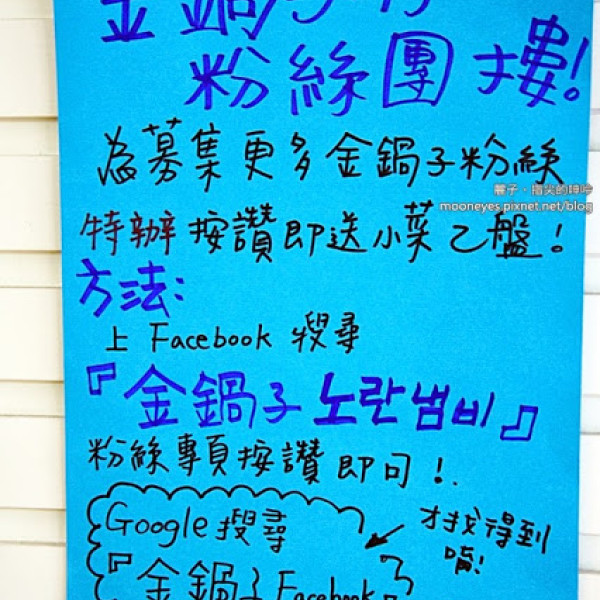 金鍋子有
粉絲團摟!
為募集更多金鍋子粉絲
馨子。指尖的呻吟
mooneyes.pixnet.net/blog
特辦按讚即送小菜乙盤!
方法:
上 Facebook 搜尋
『金鍋子노란냄비』
粉絲專頁按讚即可!
Google 搜尋
才找得到
唷!
『金鍋子 Facebook』